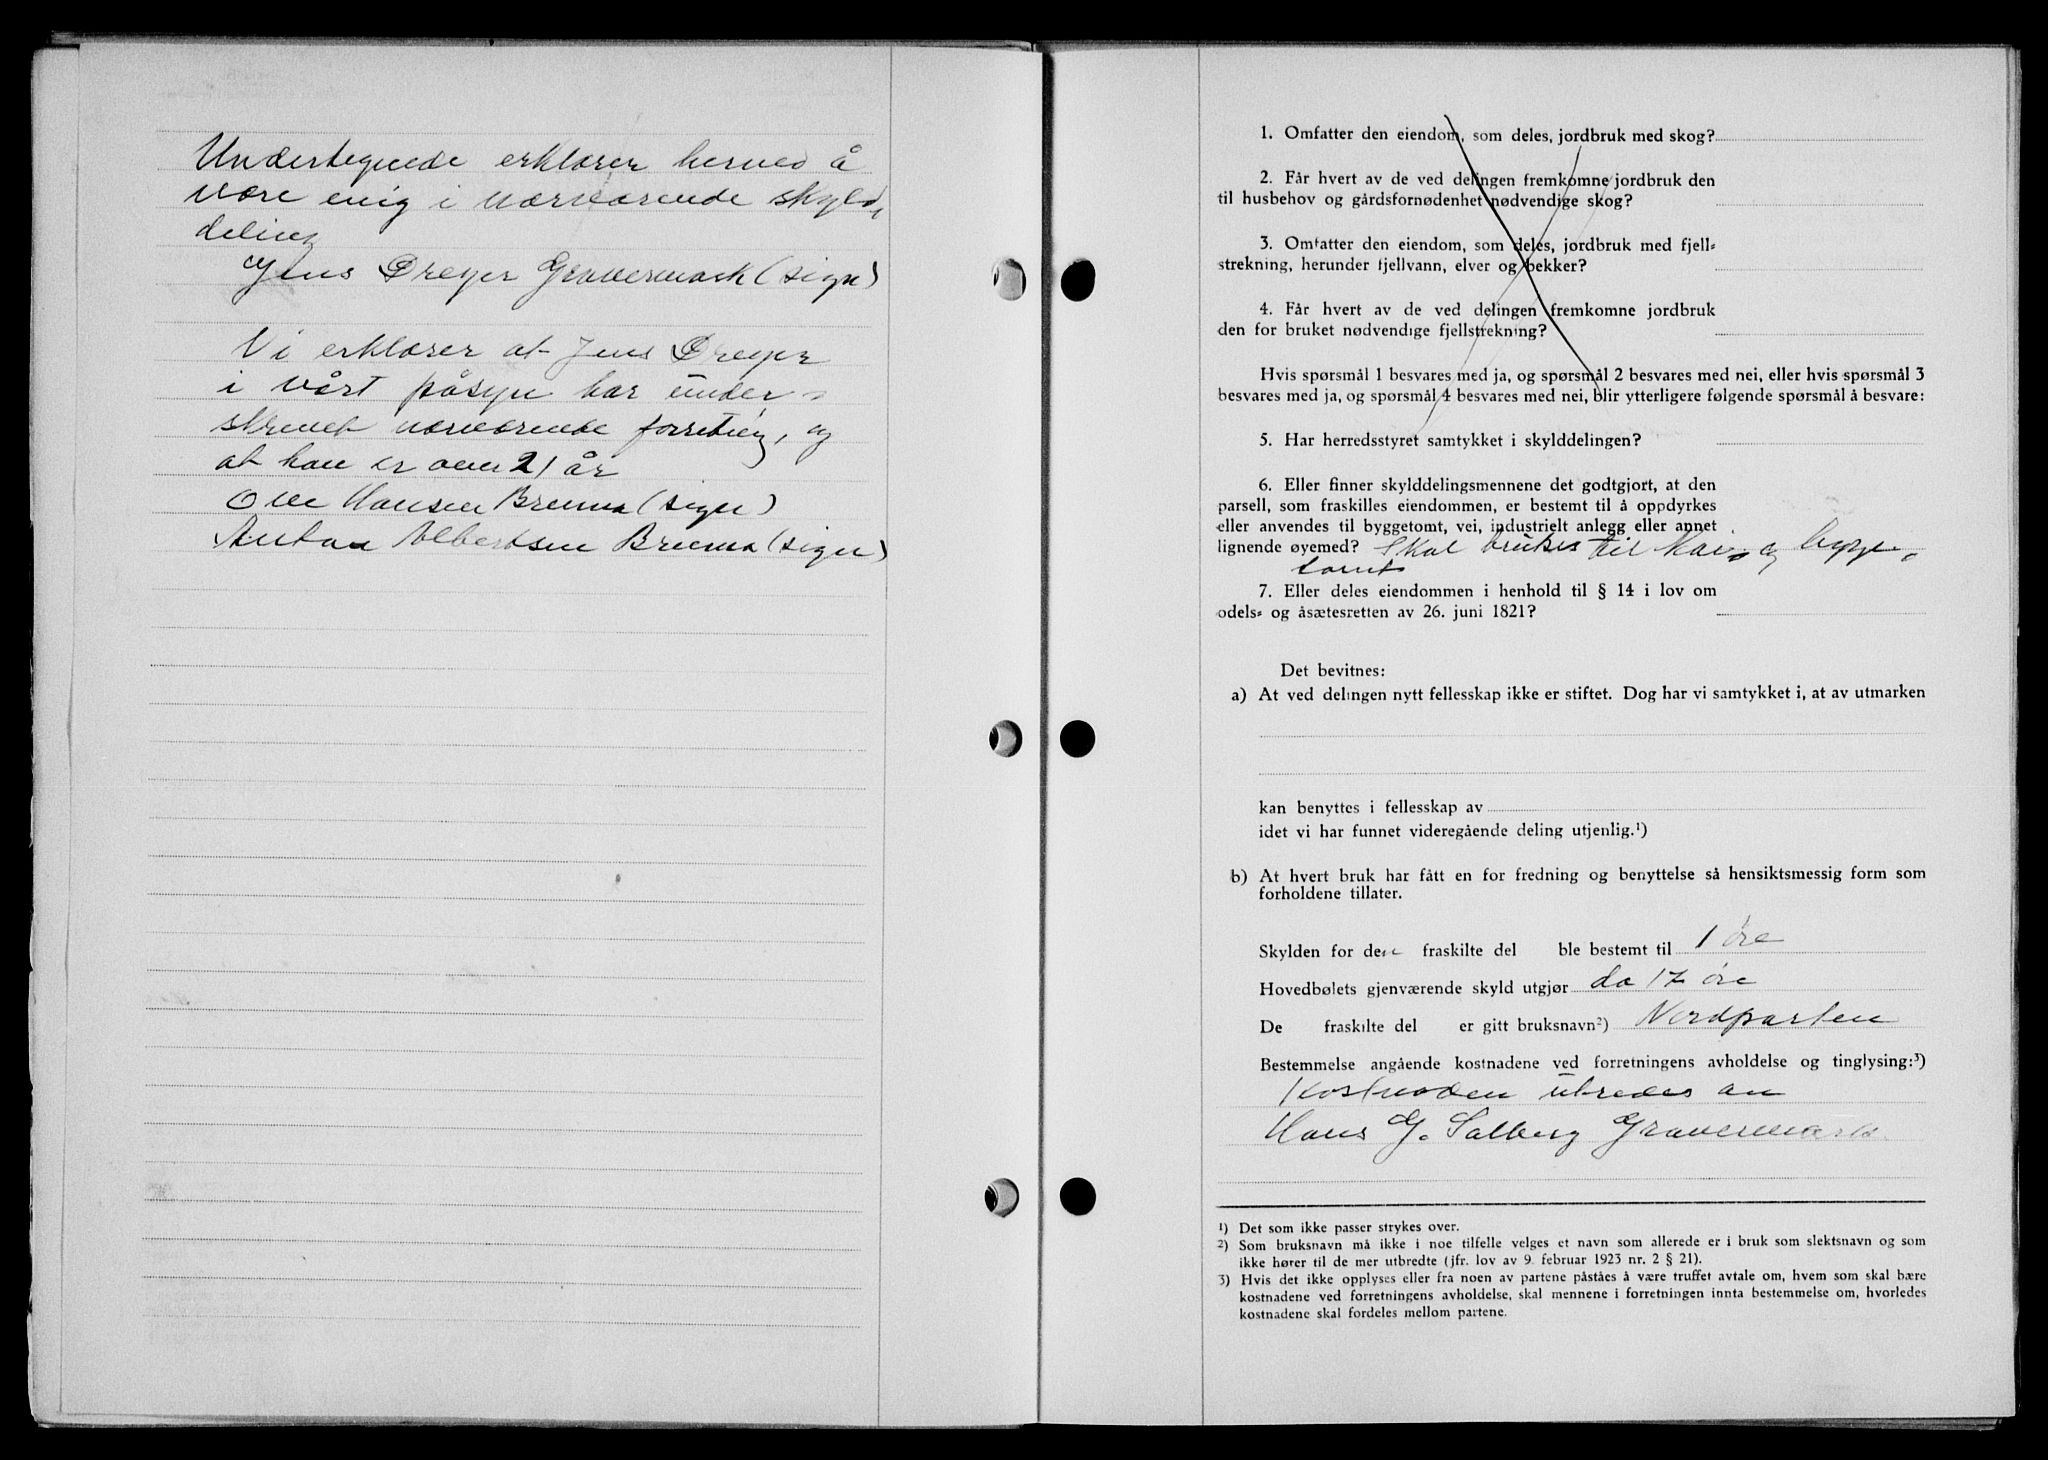 Undertegnede erklærer herved å
være enig i nærværende skyld,
deling
Jens Dreyer Gravermark (sign)
Vi erklærer at Jens Dreyer
i vårt påsyn har under-
skrevet nærværende forretning, og
at han er over 21 år
Ole Hansen Bremnes (sign)
Anton Albertsen Bremnes (sign)
1. Omfatter den eiendom, som deles, jordbruk med skog?
2. Får hvert av de ved delingen fremkomne jordbruk den
til husbehov og gårdsfornødenhet nødvendige skog?
3. Omfatter den eiendom, som deles, jordbruk med fjell-
strekning, herunder fjellvann, elver og bekker?
4. Får hvert av de ved delingen fremkomne jordbruk
den for bruket nødvendige fjellstrekning?
Hvis spørsmål 1 besvares med ja, og spørsmål 2 besvares med nei, eller hvis spørsmål 3
besvares med ja, og spørsmål 4 besvares med nei, blir ytterligere følgende spørsmål å besvare:
5. Har herredsstyret samtykket i skylddelingen?
6. Eller finner skylddelingsmennene det godtgjort, at den
parsell, som fraskilles eiendommen, er bestemt til å oppdyrkes
eller anvendes til byggetomt, vei, industrielt anlegg eller annet
lignende øyemed? Skal brukes til Kai og bygge-
tomt
7. Eller deles eiendommen i henhold til § 14 i lov om
odels- og åsætesretten av 26. juni 1821?
Det bevitnes:
a) At ved delingen nytt fellesskap ikke er stiftet. Dog har vi samtykket i, at av utmarken
kan benyttes i fellesskap av
idet vi har funnet videregående deling utjenlig.¹)
b) At hvert bruk har fått en for fredning og benyttelse så hensiktsmessig form som
forholdene tillater.
Skylden for den fraskilte del ble bestemt til 1 øre
Hovedbølets gjenværende skyld utgjør do 17 øre
De fraskilte del er gitt bruksnavn²) Nordparten
Bestemmelse angående kostnadene ved forretningens avholdelse og tinglysing:³)
Kostnaden utredes av
Hans G. Salberg Gravermark
¹) Det som ikke passer strykes over.
²) Som bruksnavn må ikke i noe tilfelle velges et navn som allerede er i bruk som slektsnavn og som
ikke hører til de mer utbredte (jfr. lov av 9. februar 1923 nr. 2 § 21).
³) Hvis det ikke opplyses eller fra noen av partene påståes å være truffet avtale om, hvem som skal bære
kostnadene ved forretningens avholdelse, skal mennene i forretningen innta bestemmelse om, hvorledes
kostnadene skal fordeles mellom partene.